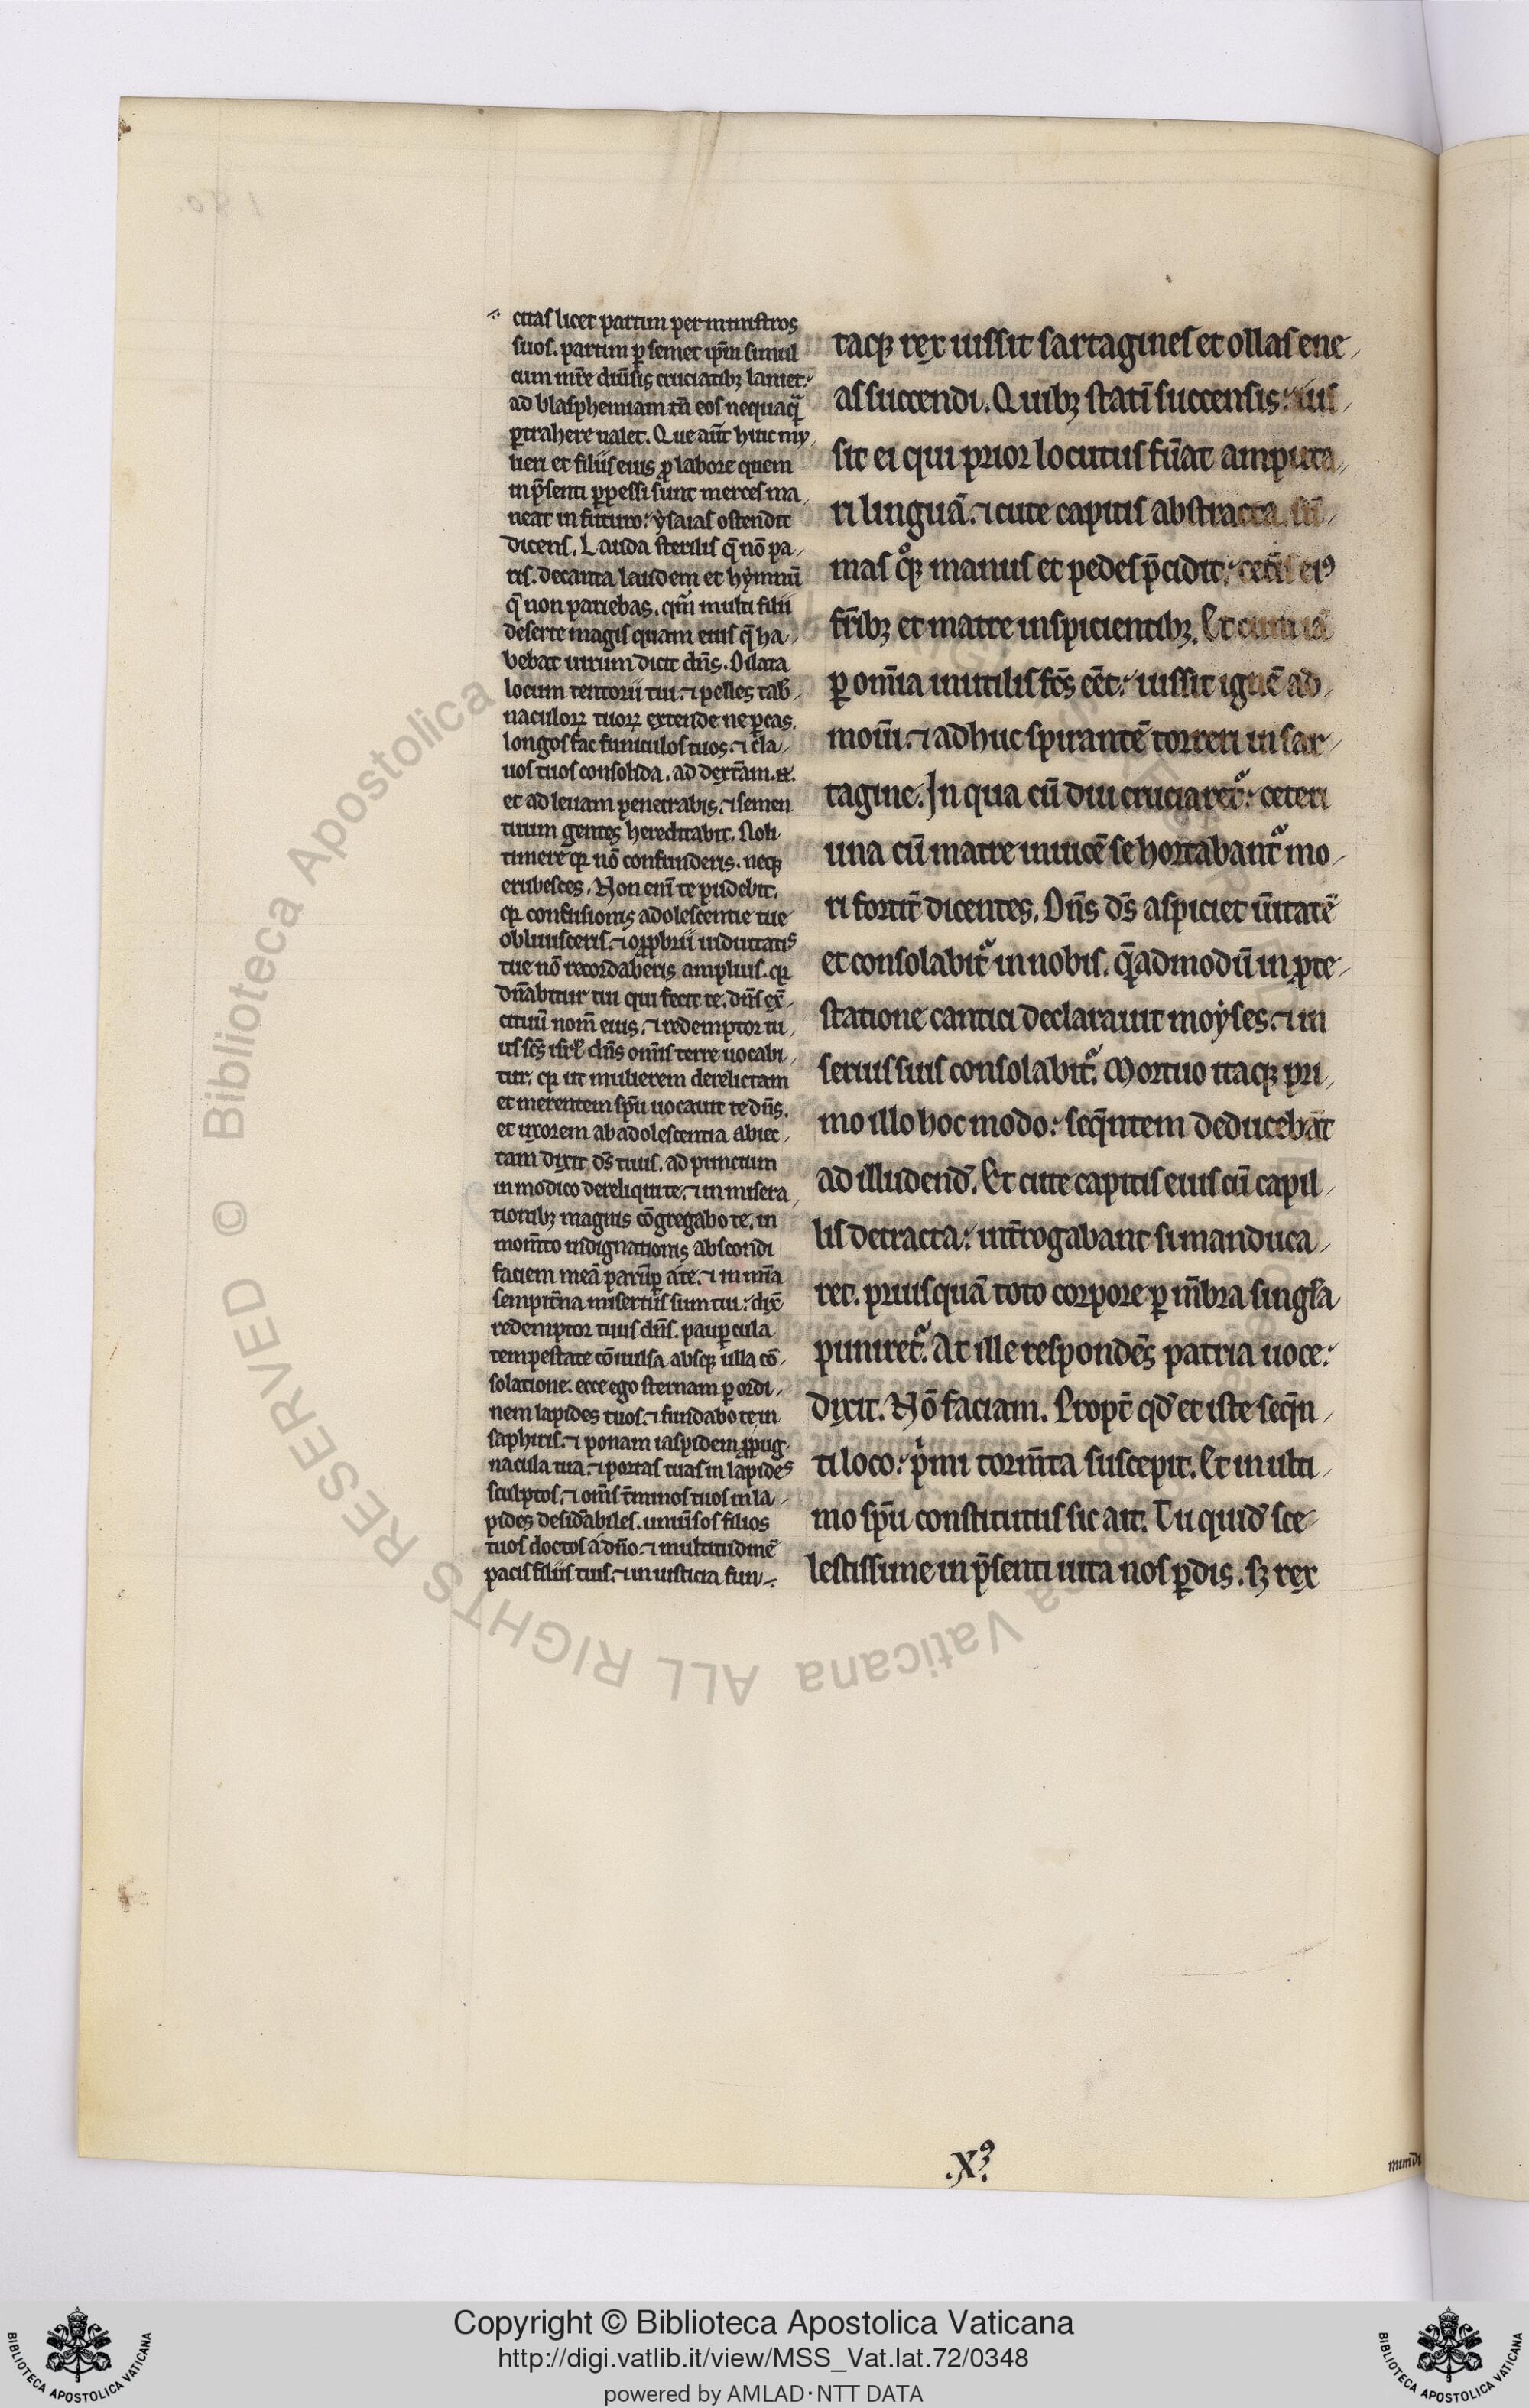 citas licet partim per ministros
suos. partim ꝑ semet ip̄m simul
cum mr̄e diūsis cruciatibꝫ laniet.
ad blasphemiam tn̄ eos nequaq̄
ꝑtrahere ualet. Que aut̄ huic mu
lieri et filiis eius ꝓ labore quem
in p̄senti ꝑpessi sunt merces ma
neat in futuro: ysaias ostendit
dicens. Lauda sterilis q̄ nō pa
ris. decanta laudem et hymnū
q̄ non pariebas. qm̄ multi filii
deserte magis quam eius q̄ ha
bebat uirum dicit dn̄s. Dilata
locum tentorii tui. ⁊ pelles tab̄
naculoꝝ tuoꝝ extende ne ꝑcas.
longos fac funiculos tuos. ⁊ cla
uos tuos consolida. ad dext̄am .n̄.
et ad leuam penetrabis. ⁊ semen
tuum gentes hereditabit. Noli
timere qꝛ nō confunderis. neqꝫ
erubesces. Non eni te pudebit.
qꝛ confusionis adolescentie tue
obliuisceris. ⁊ opꝓbrii uiduitatis
tue nō recordaberis amplius. qꝛ
dn̄abitur tui qui fecit te. dn̄s ex̄
cituū nom̄ eius. ⁊ redemptor tu
us sc̄s isrl̄ dn̄s om̄is terre uocabi
tur. qꝛ ut mulierem derelictam
et merentem spū uocauit te dn̄s.
et uxorem ab adolescentia abiec
tam dixit ds̄ tuus. ad punctum
in modico dereliqui te. ⁊ in misera
tionibꝫ magnis cōgregabo te. in
mom̄to indignationis abscondi
faciem meā parūꝑ a te. ⁊ in mīa
sempit̄na misertus sum tui: dix̄
redemptor tuus dn̄s. pauꝑcula
tempestate cōuulsa absqꝫ ulla cō
solatione. ecce ego sternam ꝑ ordi
nem lapides tuos. ⁊ fundabo te in
saphiris. ⁊ ponam iaspidem ꝓpug
nacula tua. ⁊ portas tuas in lapides
sculptos. ⁊ om̄s t̄minos tuos in la
pides desid̄abiles. uniūsos filios
tuos doctos a dn̄o. ⁊ multitudinē
pacis filiis tuis. ⁊ in iusticia fun
taqꝫ rex iussit sartagines et ollas ene
as succendi. Quibꝫ statī succensis: ius
sit ei qui prior locutus fūat amputa
ri linguā. ⁊ cute capitis abstracta. sū
mas qͦꝫ manus et pedes p̄cidit: cet̄is eiꝰ
fr̄ibꝫ et matre inspicientibꝫ. Et cum iā
ꝑ om̄ia inutilis fc̄s eēt: iussit ignē ad
moūi. ⁊ adhuc spirantē torreri in sar
tagine. In qua cū diu cruciaret᷑: ceteri
una cū matre inuicē se hortabant᷑ mo
ri fortit̄ dicentes. Dn̄s ds̄ aspiciet ūitatē
et consolabit᷑ in nobis. q̄admodū in ꝓte
statione cantici declarauit moyses. ⁊ in
seruis suis consolabit᷑. Mortuo itaqꝫ pri
mo illo hoc modo: seq̄ntem deducebāt
ad illudend̄. Et cute capitis eius cū capil
lis detracta: int̄rogabant si manduca
ret. priusquā toto corpore ꝑ m̄bra singl̄a
puniret᷑. At ille respondēs patria uoce:
dixit. Nō faciam. Propt̄ qd̄ et iste seq̄n
ti loco: p̍mi torm̄ta suscepit. Et in ulti
mo spū constitutus sic ait. Tu quid̄ sce
lestissime in p̄senti uita nos ꝑdis. sꝫ rex
.Xꝰ.
mundi
Copyright © Biblioteca Apostolica Vaticana
http://digi.vatlib.it/view/MSS_Vat.lat.72/0348
powered by AMLAD·NTT DATA
BIBLIOTECA APOSTOLICA VATICANA
BIBLIOTECA APOSTOLICA VATICANA
© Biblioteca Apostolica Vaticana ALL RIGHTS RESERVED